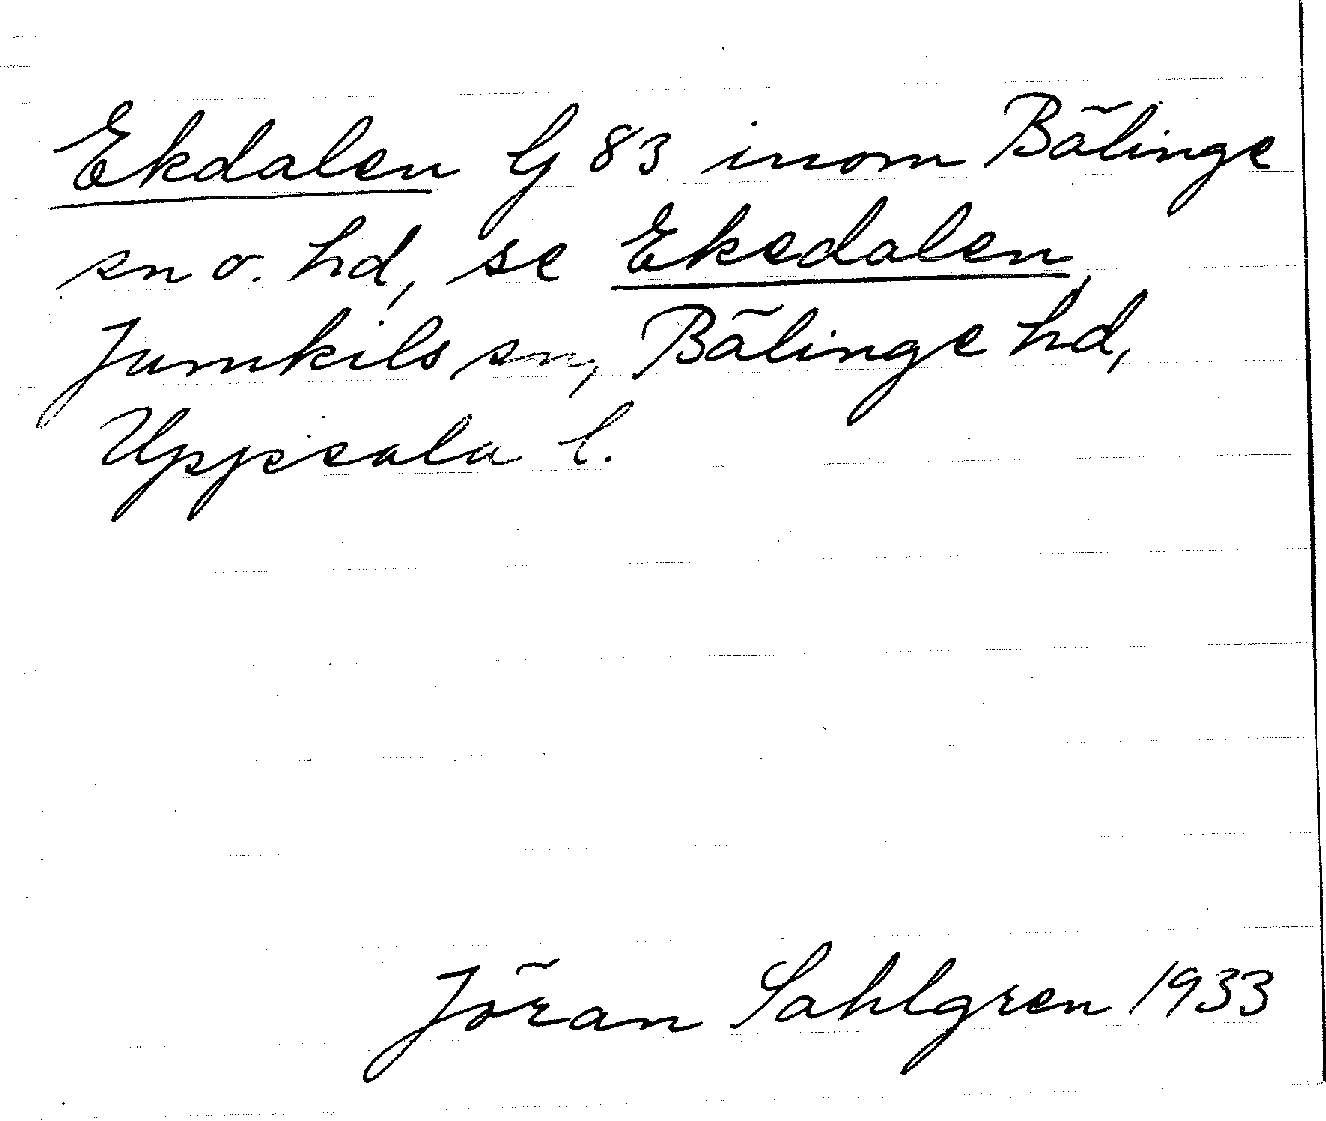 Ekdalen G 83 inom Bälinge
sn o. hd, se Eksdalen,
Jumkils sn, Bälinge hd,
Uppsala l.
Jöran Sahlgren 1933